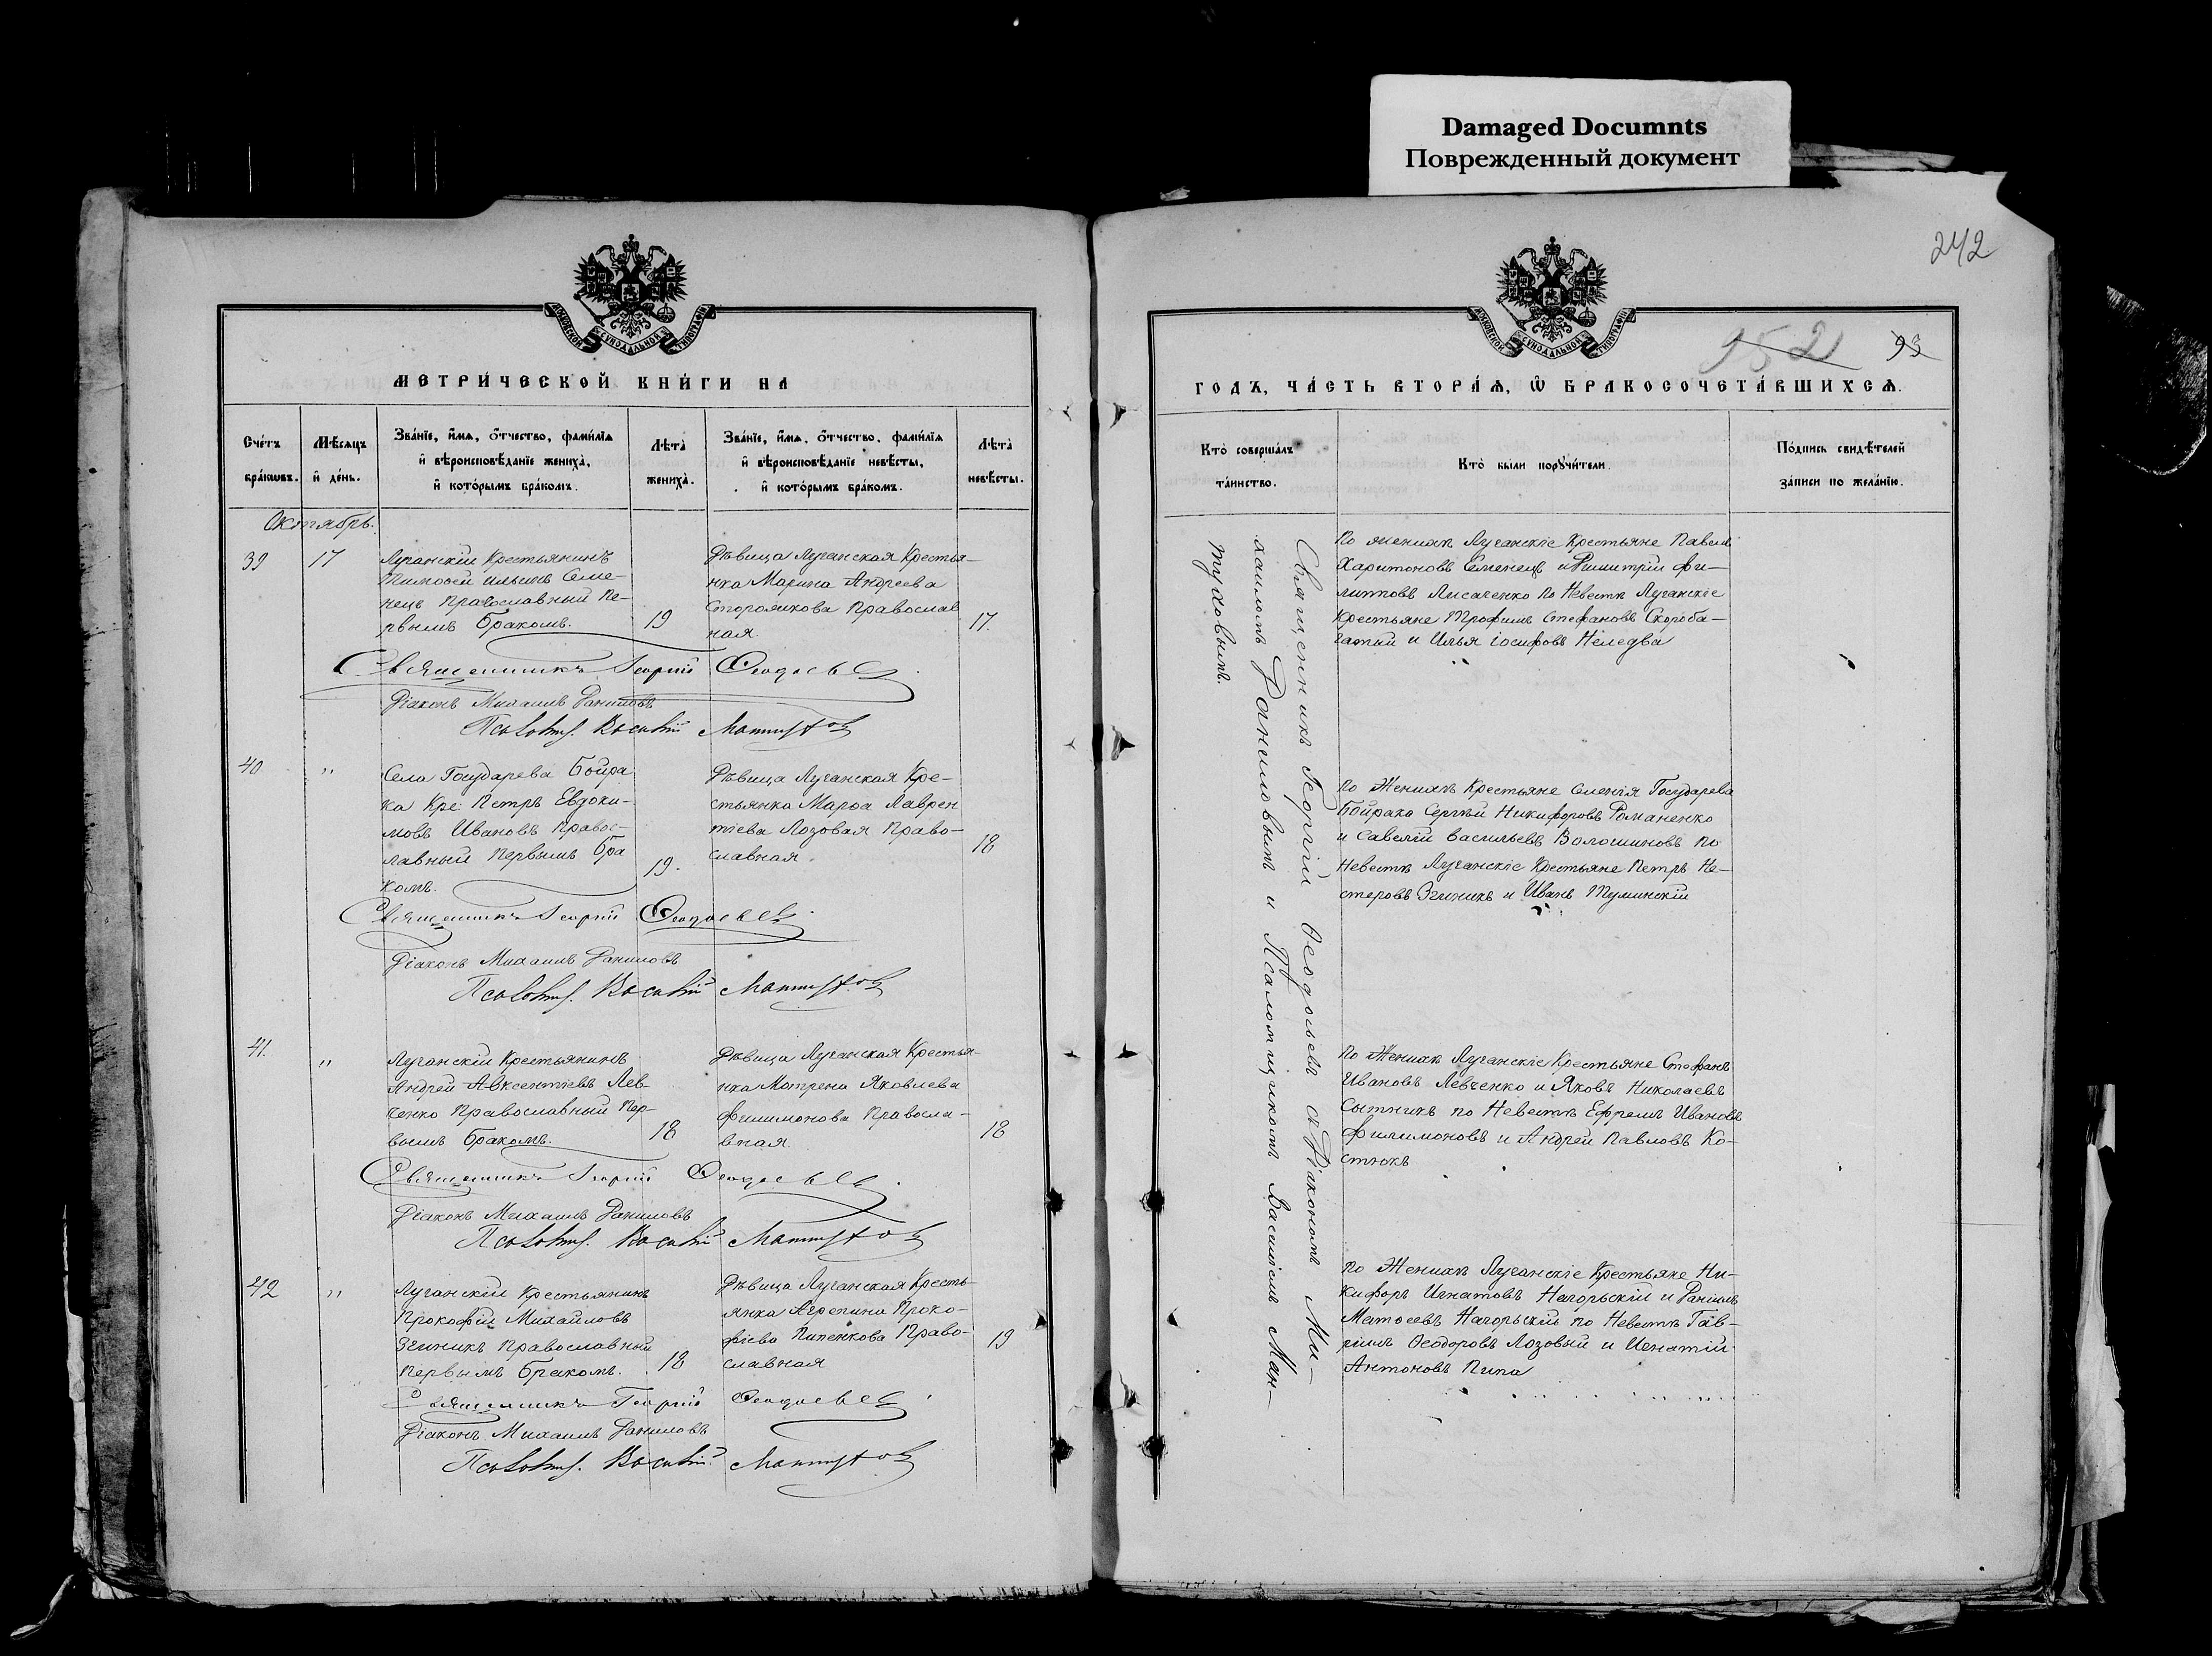 Damaged Documnts
Поврежденный документ
242
МОСКОВСКОЙ СУНОДАЛЬНОЙ ТИПОГРАФІИ
МЕТРИ́ЧЕСКОЙ КНИ́ГИ НА
Сче́тъ бра́кѡвъ.
Мѣ́сяцъ и҆ де́нь.
Зва́нїе, и҆́мѧ, ѻ҆́тчество, фами́лїѧ
и҆ вѣроисповѣ́данїе жениха̀,
и҆ кото́рымъ бра́комъ.
Лѣта̀
жениха̀.
Зва́нїе, и҆́мѧ, ѻ҆́тчество, фами́лїѧ
и҆ вѣроисповѣ́данїе невѣ́сты,
и҆ кото́рымъ бра́комъ.
Лѣта̀
невѣ́сты.
Октябрь.
39
17
Луганскій Крестьянинъ
Тимоѳей Ильинъ Семе-
нецъ Православный Пе-
рвымъ Бракомъ.
19
Дѣвица Луганская Крестья-
нка Марина Андреева
Сторожкова Православ
ная.
17.
Священникъ Георгій Ѳеодосьевъ
Діаконъ Михаилъ Даниловъ
Псаломщ. Василій Мантуховъ
40
"
Села Государева Байра
ка Кре: Петръ Евдоки-
мовъ Ивановъ Правос-
лавный Первымъ Бра
комъ.
19.
Дѣвица Луганская Кре-
стьянка Марѳа Лаврен
тіева Лозовая Право-
славная.
18
Священникъ Георгій Ѳеодосьевъ
Діаконъ Михаилъ Даниловъ
Псаломщ. Василій Мантуховъ
41.
"
Луганскій Крестьянинъ
Андрей Авксентіевъ Лев-
ченко Православный Пер-
вымъ Бракомъ.
18
Дѣвица Луганская Крестья-
нка Мотрена Яковлева
Филимонова Правосла-
вная.
18
Священникъ Георгій Ѳеодосьевъ
Діаконъ Михаилъ Даниловъ
Псаломщ. Василій Мантуховъ
42
"
Луганскій Крестьянинъ
Прокофій Михайловъ
Згинникъ Православный
Первымъ Бракомъ.
18
Дѣвица Луганская Кресть-
янка Агрепина Проко-
фіева Пипенкова Право-
славная
19
Священникъ Георгій Ѳеодосьевъ
Діаконъ Михаилъ Даниловъ
Псаломщ. Василій Мантуховъ
МОСКОВСКОЙ СУНОДАЛЬНОЙ ТИПОГРАФІИ
952
93
ГОДЪ, ЧА́СТЬ ВТОРА́Ѧ, Ѡ҆ БРАКОСОЧЕТА́ВШИХСѦ.
Кто̀ соверша́лъ
та́инство.
Кто̀ были порꙋчи́тели.
По́дпись свидѣ́телей
за́писи по жела́нїю.
Священникъ Георгій Ѳеодосьевъ съ Діакономъ Ми-
хаиломъ Даниловымъ и Псаломщикомъ Василіемъ Ман-
туховымъ.
По женихѣ Луганскіе Крестьяне Павелъ
Харитоновъ Семенецъ и Димитрій Фи-
липповъ Лисаченко По Невестѣ Луганскіе
Крестьяне Трофимъ Стефановъ Скороба-
гатый и Илья Іосифовъ Неледва
По Женихѣ Крестьяне Селенія Государева
Байрака Сергѣй Никифоровъ Романенко
и Савелій Васильевъ Волошиновъ По
Невестѣ Луганскіе Крестьяне Петръ Не-
стеровъ Згиникъ и Иванъ Тулинскій
По Женихѣ Луганскіе Крестьяне Стефанъ
Ивановъ Левченко и Яковъ Николаевъ
Сытникъ по Невестѣ Ефремъ Ивановъ
Филимоновъ и Андрей Павловъ Ко-
стюкъ
По Женихѣ Луганскіе Крестьяне Ни-
кифоръ Игнатовъ Нагорьскій и Даніилъ
Матѳеевъ Нагорьскій по Невестѣ Гав-
ріилъ Ѳеодоровъ Лозовый и Игнатій
Антоновъ Пипа